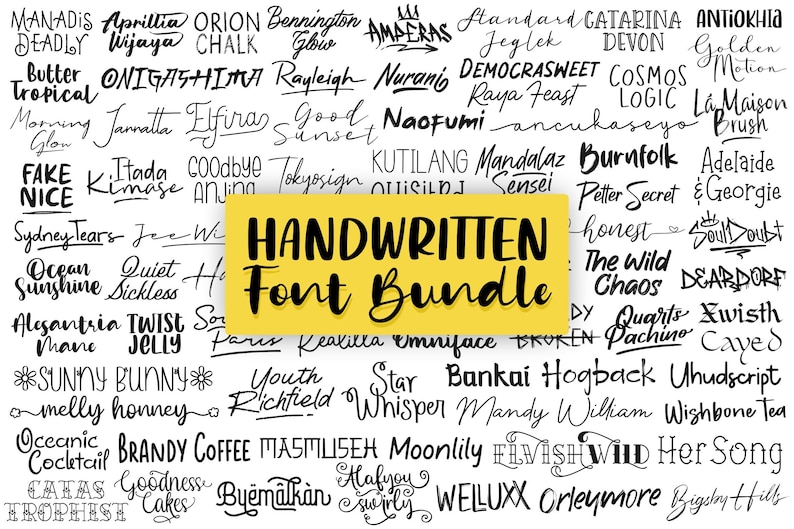 MANADIS
DEADLY
Aprillia
Wijaya
ORION
CHALK
Bennington
Glow
AMPERAS
Standard
Jeglek
CATARINA
DEVON
ANTIOKHIA
Golden
Motion
Butter
Tropical
ONIGASHIMA
Rayleigh
Nurani
DEMOCRASWEET
Raya Feast
COSMOS
LOGIC
La Maison
Brush
Morning
Glow
Jannatta
Elfira
Good
Sunset
Naofumi
ancukaseyo
FAKE
NICE
Itada
Kimase
GOODBYE
ANJING
Tokyosign
KUTILANG
Mandalaz
Sensei
Burnfolk
Petter Secret
Adelaide
& Georgie
HANDWRITTEN
Font Bundle
Sydney Tears
honest
SoulDoubt
Ocean
Sunshine
Quiet
Sickless
The Wild
Chaos
DEARDORF
Alesantria
Mane
TWIST
JELLY
Paris
Realilla
Omniface
BROKEN
Quarts
Pachino
Xwisth
Cayed
SUNNY BUNNY
melly honney
Youth
Richfield
Star
Whisper
Bankai
Hogback
Uhudscript
Mandy William
Wishbone Tea
Oceanic
Cocktail
BRANDY COFFEE
MASMUSEH
Moonlily
ELVISH WILD
Her Song
CATAS
TROPHIST
Goodness
Cakes
Byëmalkàn
Alafyou
swirly
WELLUXX
Orleymore
Bigsby Hills